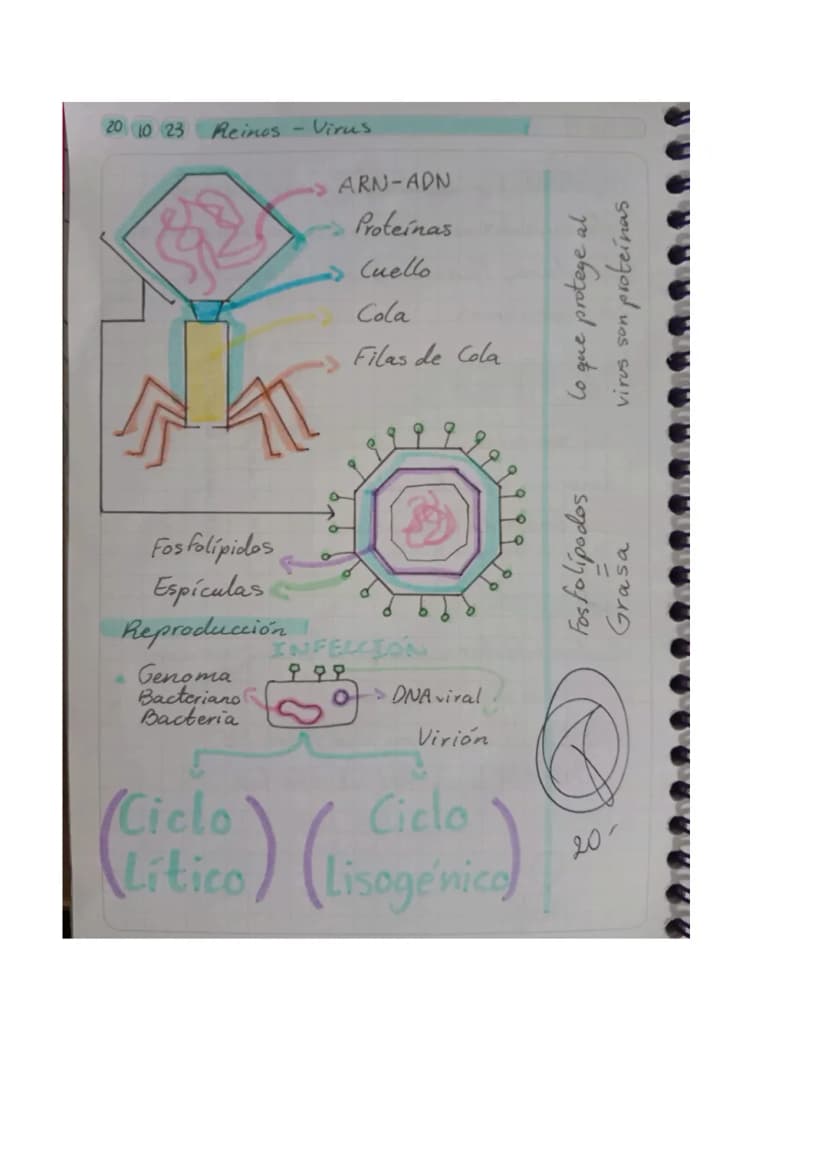 20 10 23 Reinos - Virus
ARN-ADN
Proteínas
Cuello
Cola
Filas de Cola
Fosfolípidos
Espículas
Reproducción
INFECCIÓN
Genoma
Bacteriano
Bacteria
DNA viral
Virión
Ciclo
Lítico
Ciclo
Lisogénico
lo que protege al
virus son proteínas
Fosfolípodos
=
Grasa
20'